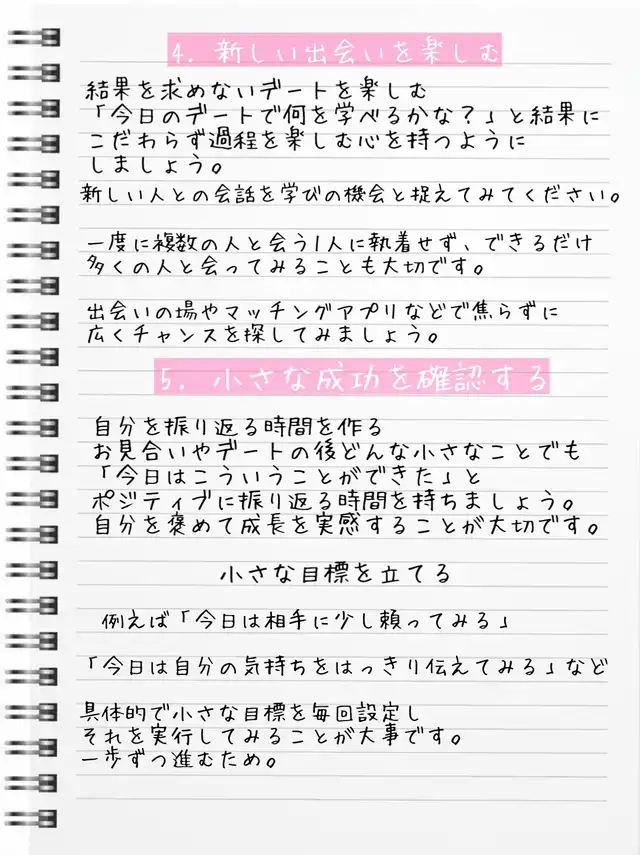 4. 新しい出会いを楽しむ
結果を求めないデートを楽しむ
「今日のデートで何を学べるかな？」と結果に
こだわらず過程を楽しむ心を持つように
しましょう。
新しい人との会話を学びの機会と捉えてみてください。
一度に複数の人と会う1人に執着せず、できるだけ
多くの人と会ってみることも大切です。
出会いの場やマッチングアプリなどで焦らずに
広くチャンスを探してみましょう。
5. 小さな成功を確認する
自分を振り返る時間を作る
お見合いやデートの後どんな小さなことでも
「今日はこういうことができた」と
ポジティブに振り返る時間を持ちましょう。
自分を褒めて成長を実感することが大切です。
小さな目標を立てる
例えば「今日は相手に少し頼ってみる」
「今日は自分の気持ちをはっきり伝えてみる」など
具体的で小さな目標を毎回設定し
それを実行してみることが大事です。
一歩ずつ進むため。